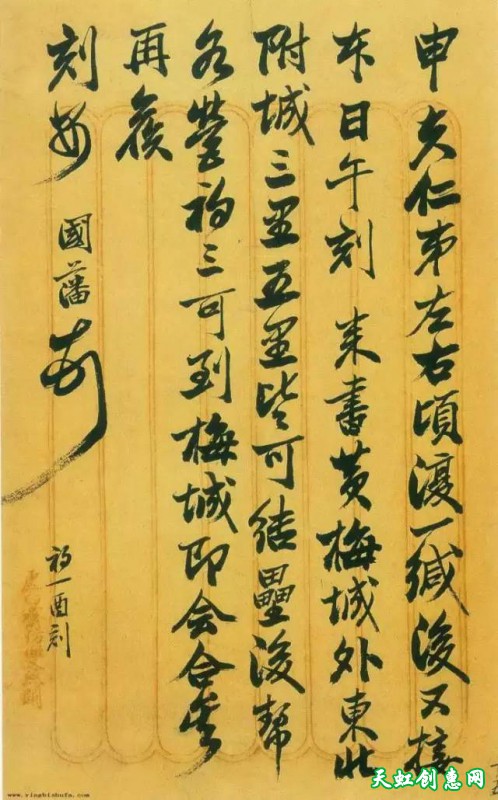 申夫仁弟左右頃復一緘後又接
本日午刻来書黄梅城外東北
附城三里五里皆可結壘後幫
各營初三可到梅城即会合矣
再候
刻安 國藩頓首
初一酉刻
www.yingbishufa.com
天虹创惠网